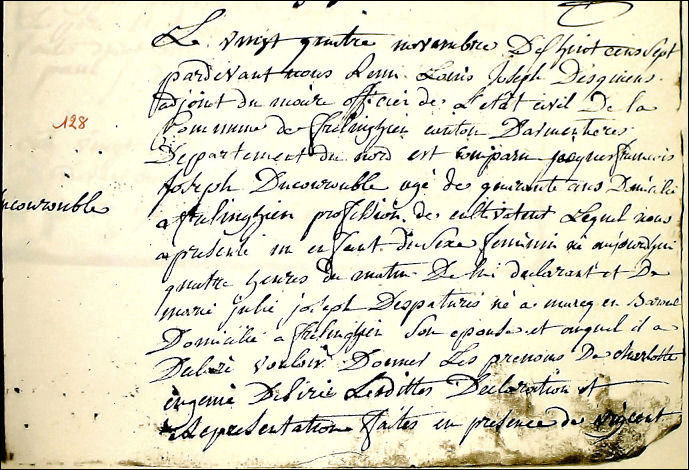 Le vingt quatre novembre Dixhuit cens sept
pardevant nous Louis Joseph Desquiens
adjoint du maire officier de L'etat civil De la
Commune de frelinghien canton D'armentieres
Departement du nord est comparu jacques francois
Joseph Ducourouble agé de quarante ans Domicilié
a frelinghien profession de cultivateur Lequel nous
a presenté un enfant du Sexe feminin né aujourd'hui
128
ucourouble
quatre heures du matin De lui declarant et De
marie julie joseph Despatures né a marcq en Baroeul
Domicilié a frelinghien Son epouse et auquel il a
Declaré vouloir Donner Les prenoms De charlotte
eugenie Desirée Lesdittes Declaration et
Representation faites en presence de vincent